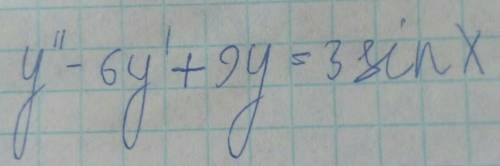 y'' - 6y' + 9y = 3 sin x